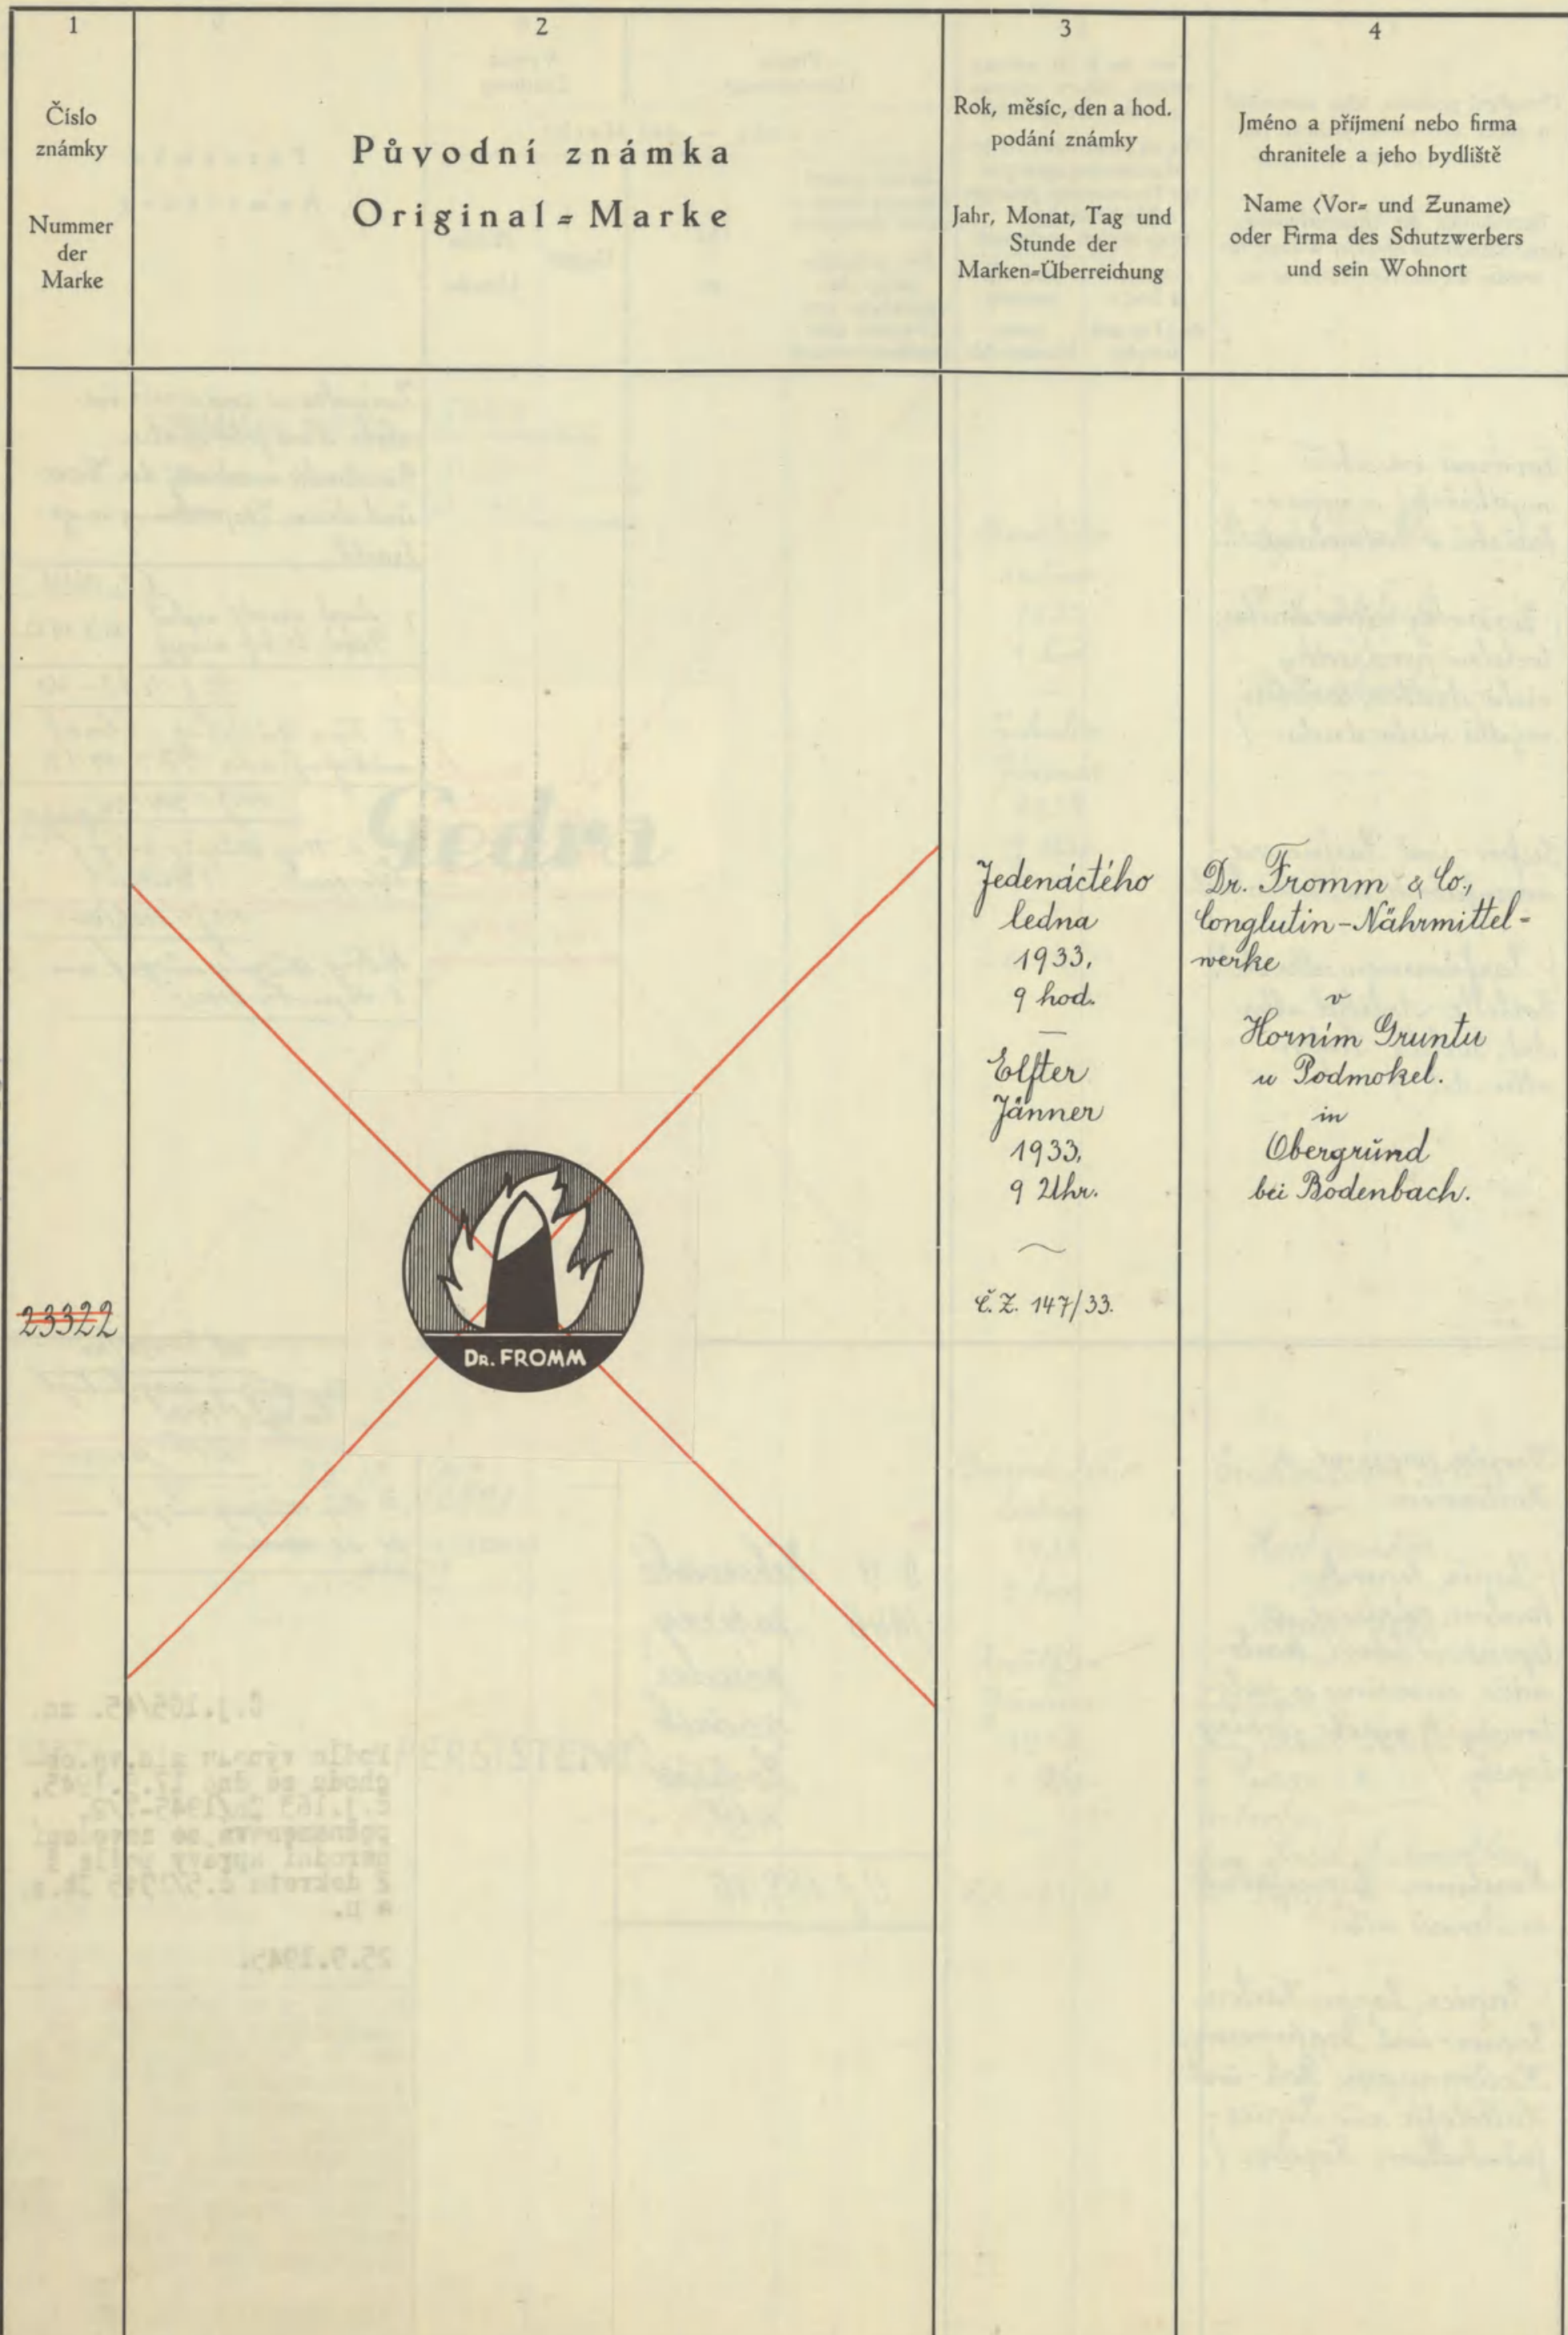 1
Číslo
známky
Nummer
der
Marke
2
Původní známka
Original=Marke
3
Rok, měsíc, den a hod.
podání známky
Jahr, Monat, Tag und
Stunde der
Marken=Überreichung
4
Jméno a příjmení nebo firma
chranitele a jeho bydliště
Name (Vor= und Zuname)
oder Firma des Schutzwerbers
und sein Wohnort
23322
DR. FROMM
Jedenáctého
ledna
1933,
9 hod.
—
Elfter
Jänner
1933,
9 Uhr.
Č. Z. 147/33.
Dr. Fromm & Co.,
Conglutin-Nährmittel-
werke
v
Horním Gruntu
u Podmokel.
in
Obergrŭnd
bei Bodenbach.